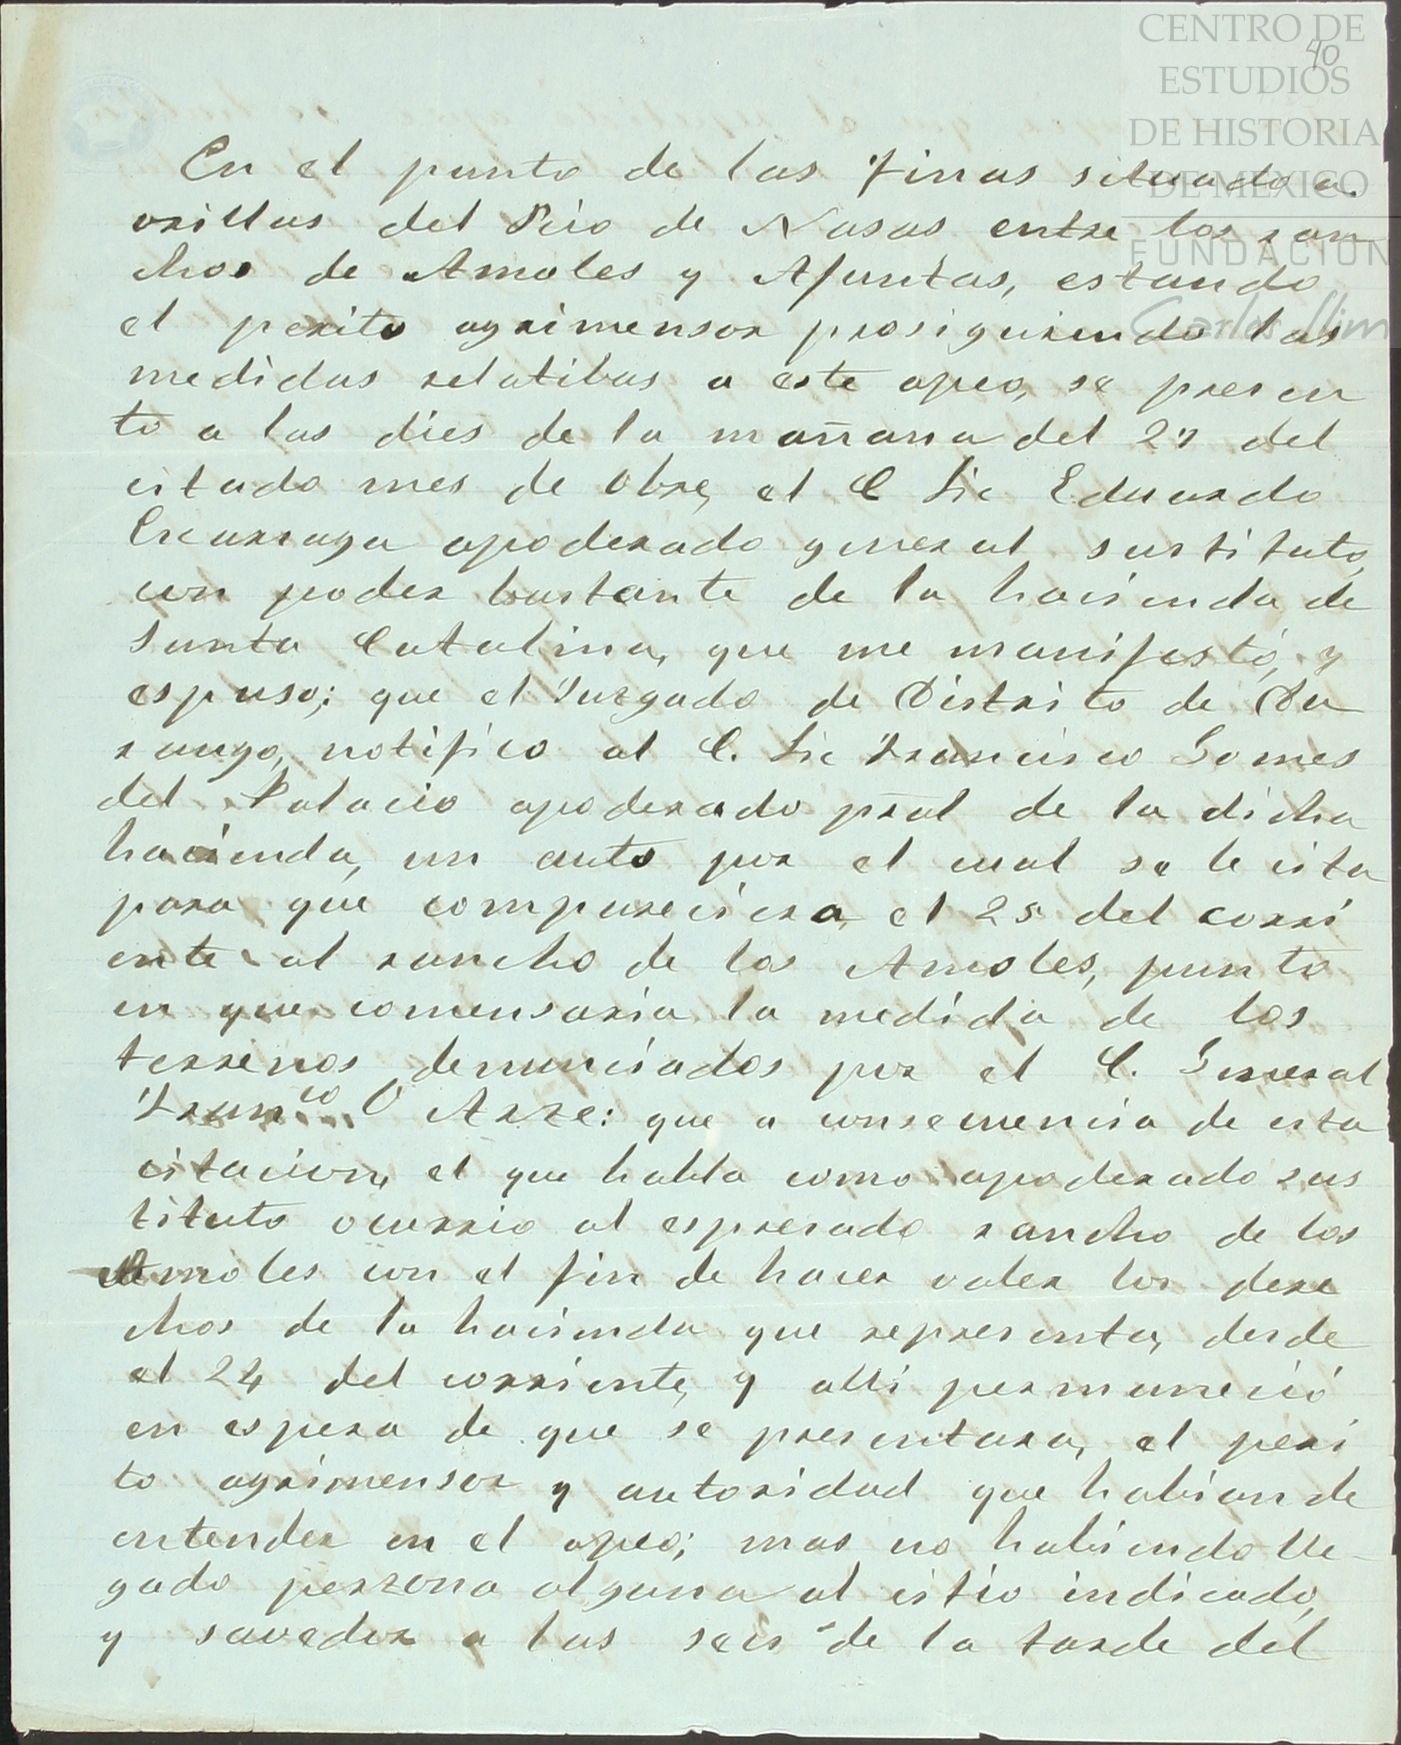 CENTRO DE
ESTUDIOS
DE HISTORIA
DE MEXICO
FUNDACION
Carlos Slim
40
En el punto de las Tinas situado a
orillas del Rio de Nasas entre los ran
chos de Amoles y Apuntas, estando
el perito agrimensor prosiguiendo las
medidas relatibas a este apeo, se presen
to a las dies de la mañana del 27 del
citado mes de Obre, el C Lic Eduardo
apoderado general sustituto,
con poder bastante de la hacienda de
Santa Catalina, que me manifestó, y
espuso; que el Juzgado de Distrito de Du
rango, notifico al C. Lic Francisco Gomes
del Palacio apoderado pral de la dicha
hacienda, un auto por el cual se le cita
para que compareciera el 25 del corri
ente al rancho de los Amoles, punto
en que comensaria la medida de los
terrenos denunciados por el C. General
Franco O Arze: que a consecuencia de esta
citacion, el que habla como apoderado sus
tituto ocurrio al espresado rancho de los
Amoles con el fin de hacer valer los dere
chos de la hacienda que representa, desde
el 24 del corriente, y alli permaneció
en espera de que se presentara, el peri
to agrimensor y autoridad que habian de
entender en el apeo; mas no habiendo lle-
gado perzona alguna al citio indicado,
y savedor a las seis de la tarde del